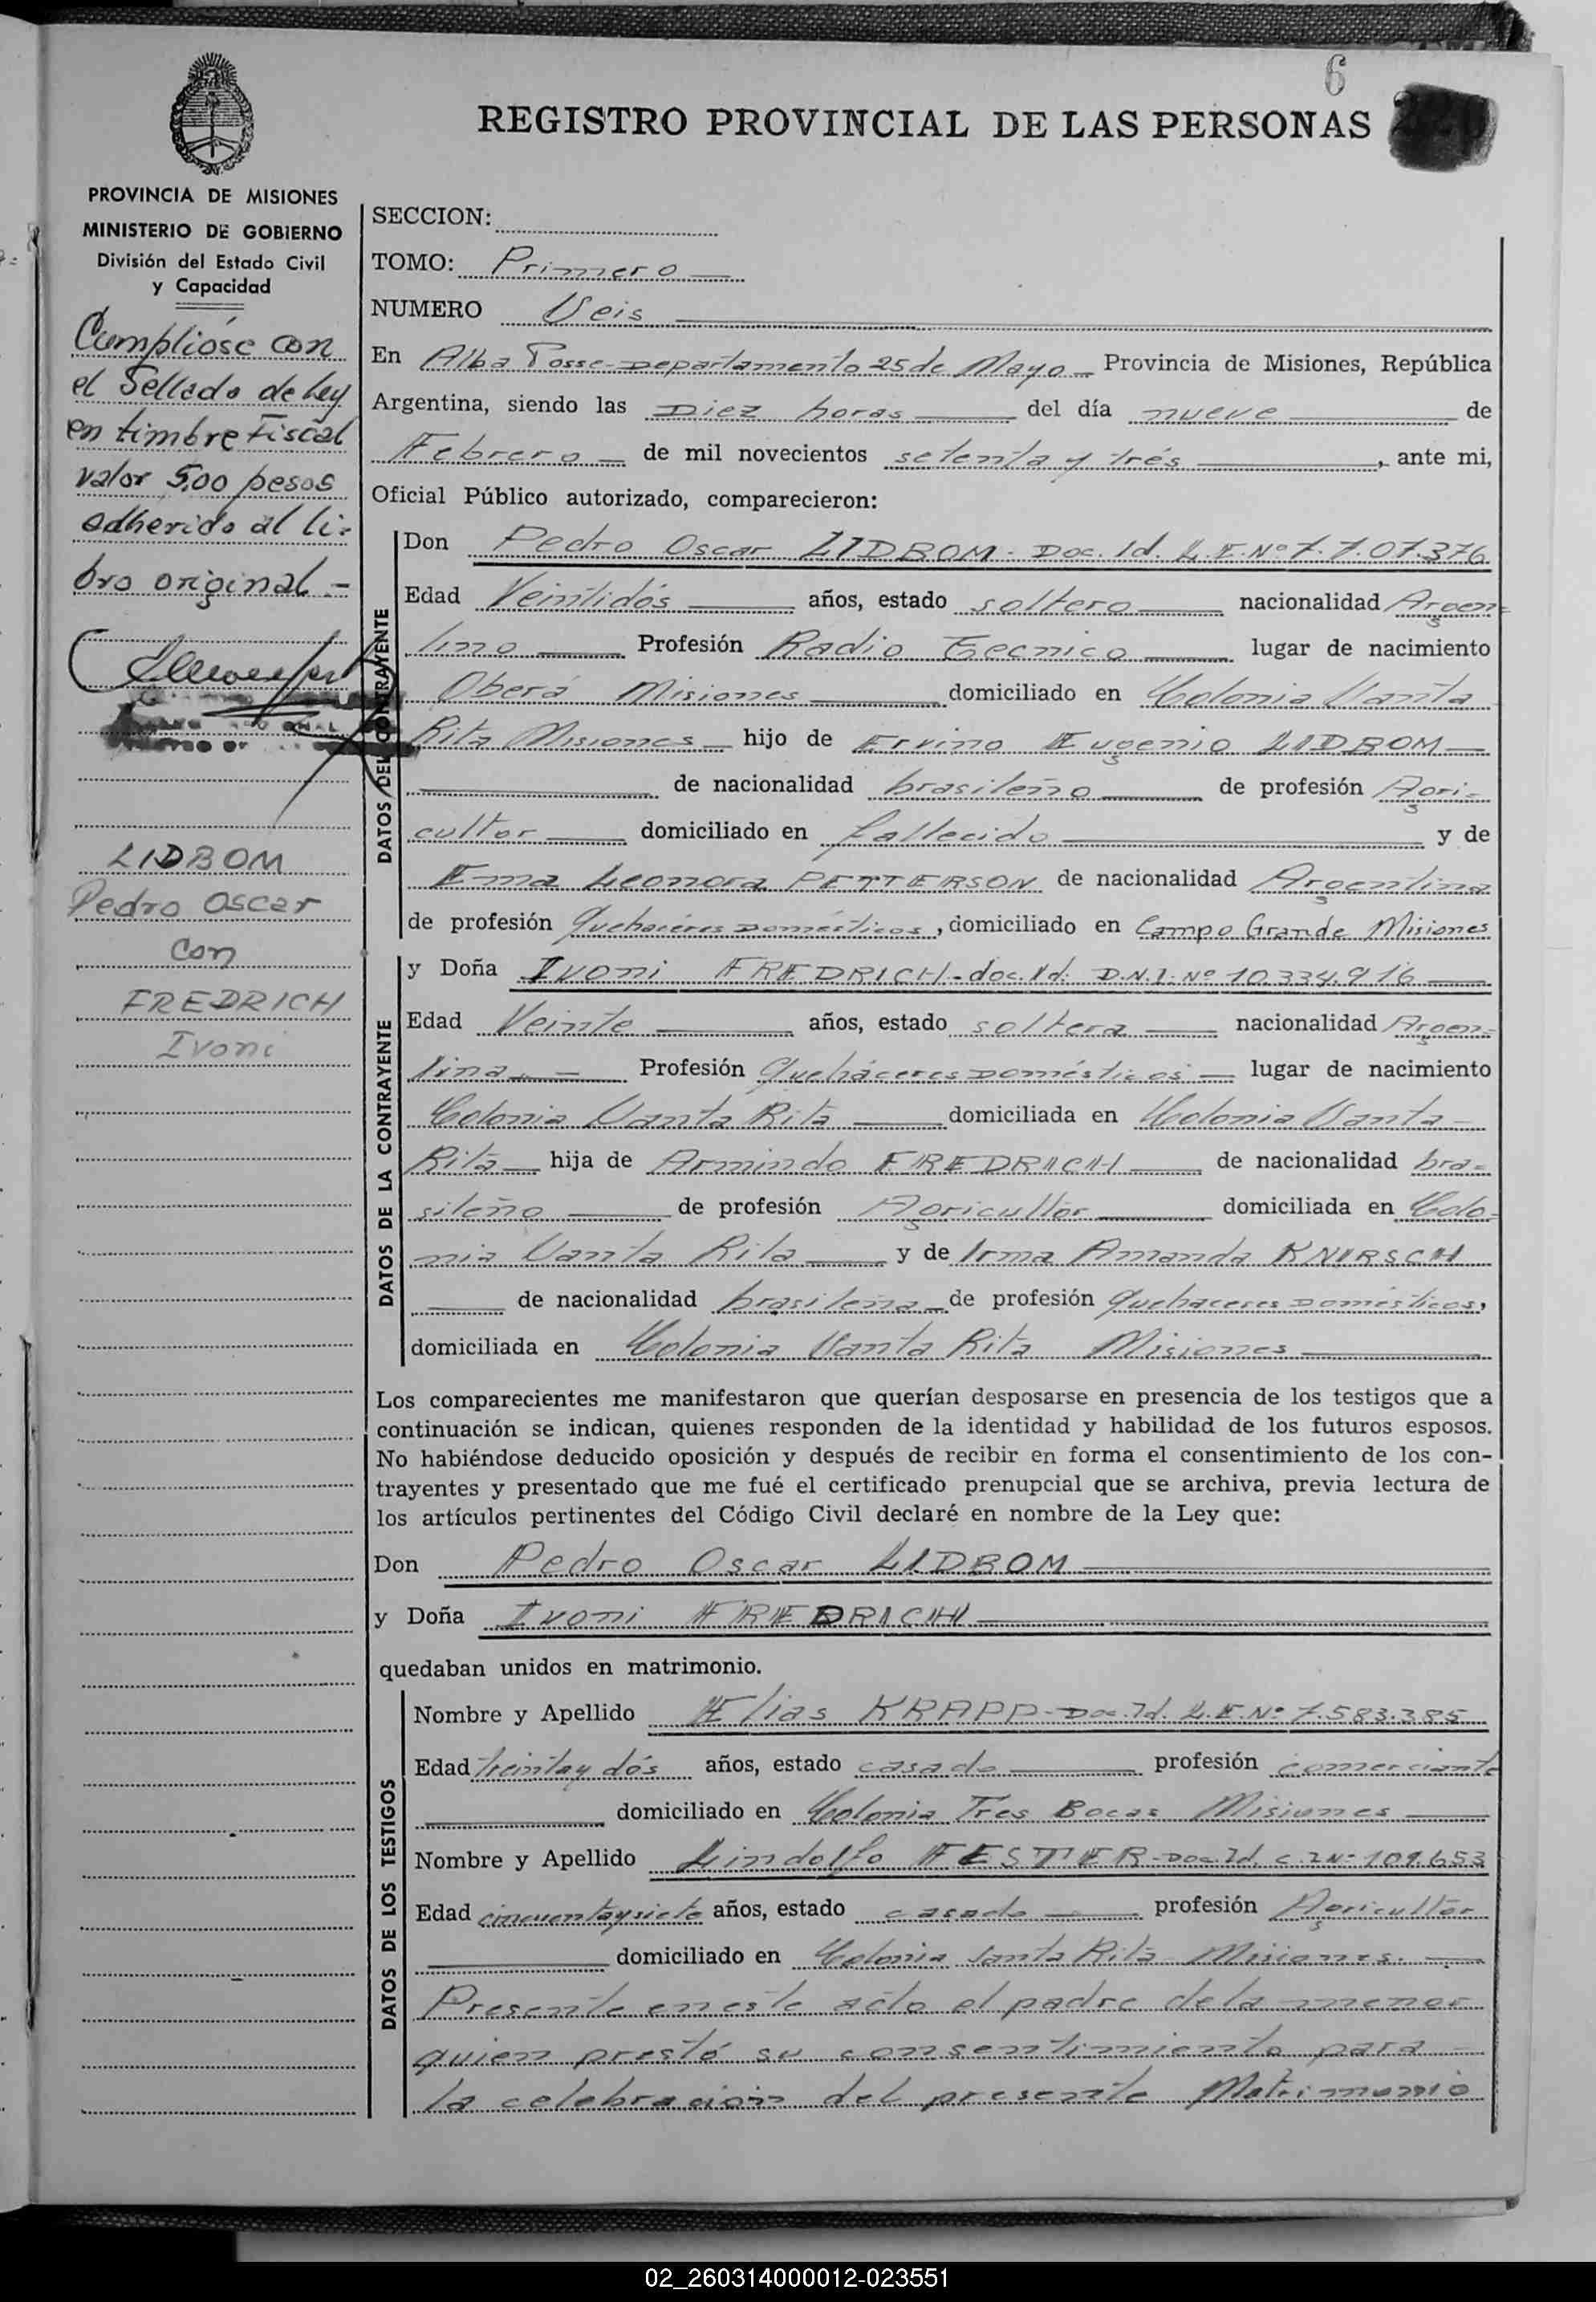 6
REGISTRO PROVINCIAL DE LAS PERSONAS
PROVINCIA DE MISIONES
MINISTERIO DE GOBIERNO
División del Estado Civil
y Capacidad
Cumplióse con
el Sellado de ley
en timbre Fiscal
valor 5,00 pesos
adherido al li-
bro original.-
LIDBOM
Pedro Oscar
con
FREDRICH
Ivoni
SECCION:
TOMO: Primero
NUMERO Seis
En Alba Posse-Departamento 25 de Mayo Provincia de Misiones, República
Argentina, siendo las Diez horas del día nueve de
Febrero de mil novecientos setenta y trés, ante mi,
Oficial Público autorizado, comparecieron:
DATOS DEL CONTRAYENTE
Don Pedro Oscar LIDBOM - Doc. Id. L.E. Nº 7.7.07.376
Edad Veintidós años, estado soltero nacionalidad Argen-
tino Profesión Radio Tecnico lugar de nacimiento
Oberá Misiones domiciliado en Colonia Santa
Rita Misiones hijo de Ervino Eugenio LIDBOM
de nacionalidad brasileño de profesión Agri-
cultor domiciliado en fallecido y de
Ema Leonora PETTERSON de nacionalidad Argentina
de profesión Quehaceres Domésticos, domiciliado en Campo Grande Misiones
DATOS DE LA CONTRAYENTE
y Doña Ivoni FREDRICH.- doc. Id. D.N.I. Nº 10.334.916
Edad Veinte años, estado soltera nacionalidad Argen-
tina.- Profesión Quehaceres Domésticos lugar de nacimiento
Colonia Santa Rita domiciliada en Colonia Santa
Rita hija de Armindo FREDRICH de nacionalidad bra-
sileño de profesión Agricultor domiciliada en Colo-
nia Santa Rita y de Irma Amanda KNIRSCH
de nacionalidad brasileña de profesión Quehaceres Domésticos,
domiciliada en Colonia Santa Rita Misiones
Los comparecientes me manifestaron que querían desposarse en presencia de los testigos que a
continuación se indican, quienes responden de la identidad y habilidad de los futuros esposos.
No habiéndose deducido oposición y después de recibir en forma el consentimiento de los con-
trayentes y presentado que me fué el certificado prenupcial que se archiva, previa lectura de
los artículos pertinentes del Código Civil declaré en nombre de la Ley que:
Don Pedro Oscar LIDBOM
y Doña Ivoni FREDRICH
quedaban unidos en matrimonio.
DATOS DE LOS TESTIGOS
Nombre y Apellido Elias KRAPP - Doc. Id. L.E. Nº 7.583.385
Edad treinta y dós años, estado casado profesión comerciante
domiciliado en Colonia Tres Bocas Misiones
Nombre y Apellido Lindolfo FESTER - Doc. Id. C.I Nº 109.653
Edad cincuenta y siete años, estado casado profesión Agricultor
domiciliado en Colonia Santa Rita Misiones.
Presente en este acto el padre de la menor
quien prestó su consentimiento para
la celebración del presente Matrimonio
02_260314000012-023551